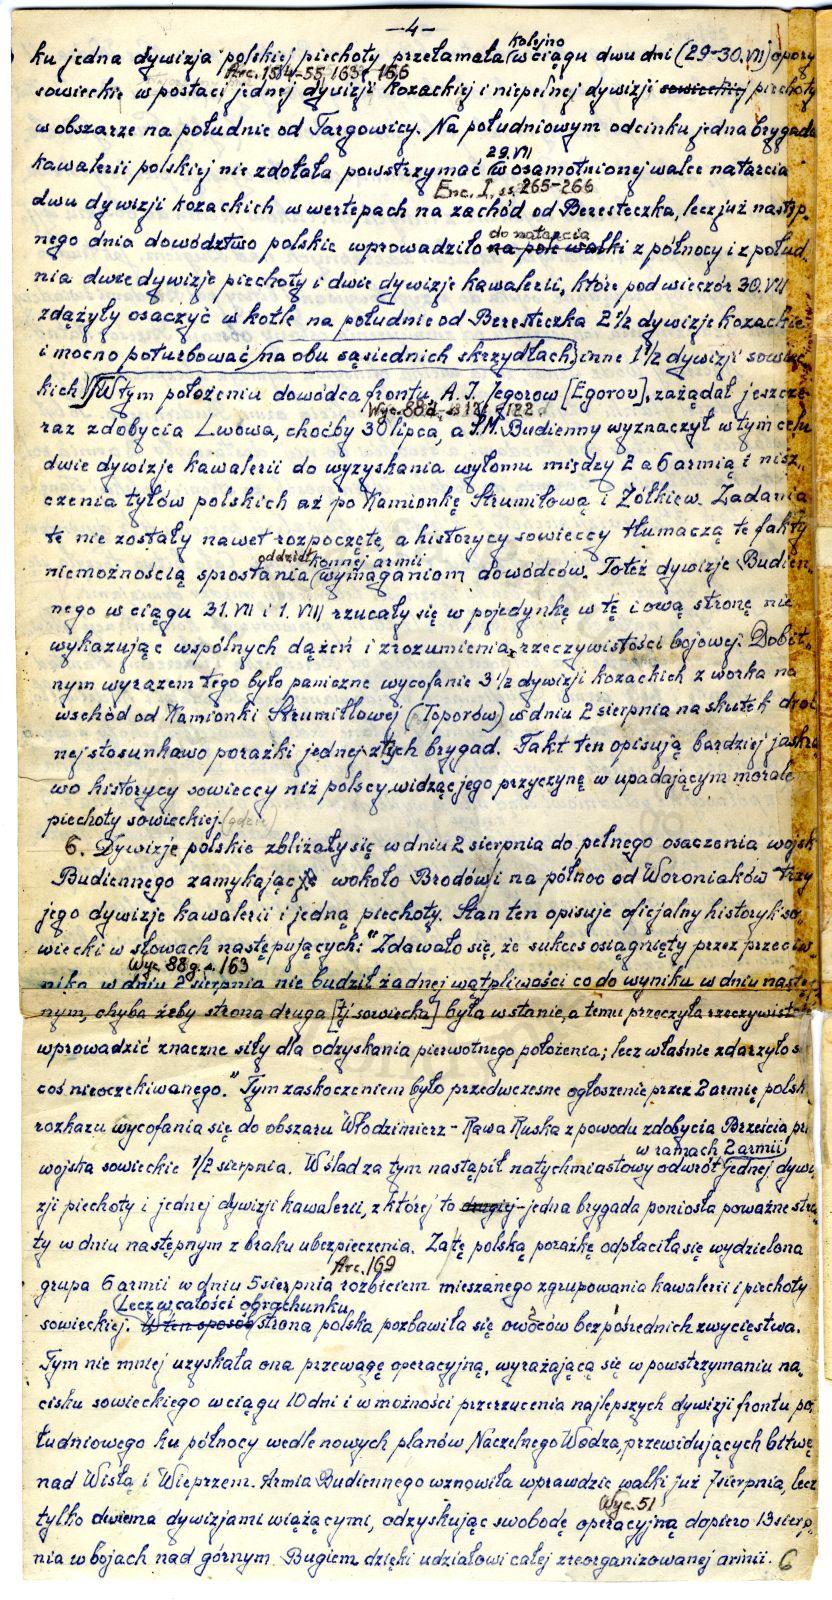 —4—
kolejno
ku jedna dywizja polskiej piechoty przełamała w ciągu dwu dni (29-30.VII) opory
Arc. 154-55, 163, 166
sowieckie w postaci jednej dywizji kozackiej i niepełnej dywizji sowieckiej piechoty
w obszarze na południe od Targowicy. Na południowym odcinku jedna brygada
29.VII
kawalerii polskiej nie zdołała powstrzymać w osamotnionej walce natarcia
Enc. I, ss. 265-266
dwu dywizji kozackich w wertepach na zachód od Beresteczka, lecz już następ-
do natarcia
nego dnia dowództwo polskie wprowadziło na pole walki z północy i z połud.
nia dwie dywizje piechoty i dwie dywizje kawalerii, które pod wieczór 30.VII
zdążyły osaczyć w kotle na południe od Beresteczka 2½ dywizje kozackie
i mocno poturbować na obu sąsiednich skrzydłach inne 1½ dywizji sowiec-
kich. W tym położeniu dowódca frontu, A.I. Jegorow [Egorov], zażądał jeszcze
Wyc. 88a, ss 121, 122
raz zdobycia Lwowa, choćby 30 lipca, a S.M. Budienny wyznaczył w tym celu
dwie dywizje kawalerii do wyzyskania wyłomu między 2 a 6 armią i nisz-
czenia tyłów polskich aż po Kamionkę Strumiłową i Żółkiew. Zadania
te nie zostały nawet rozpoczęte, a historycy sowieccy tłumaczą te fakty
oddział konnej armii
niemożnością sprostania wymaganiom dowódców. Toteż dywizje Budien-
nego w ciągu 31.VII i 1.VIII rzucały się w pojedynkę w tę i ową stronę nie
wykazując wspólnych dążeń i zrozumienia rzeczywistości bojowej. Dobit-
nym wyrazem tego było paniczne wycofanie 3½ dywizji kozackich z worka na
wschód od Kamionki Strumiłłowej (Toporów) w dniu 2 sierpnia na skutek drob
nej stosunkowo porażki jednej z tych brygad. Fakt ten opisują bardziej jaskra
wo historycy sowieccy niż polscy, widząc jego przyczynę w upadającym morale
piechoty sowieckiej.
6. Dywizje polskie zbliżały się w dniu 2 sierpnia do pełnego osaczenia wojsk
Budiennego zamykając wokoło Brodów i na północ od Woroniaków trzy
jego dywizje kawalerii i jedną piechoty. Stan ten opisuje oficjalny historyk so-
wiecki w słowach następujących: "Zdawało się, że sukces osiągnięty przez przeciw-
Wyc. 88g s. 163
nika w dniu 2 sierpnia nie budził żadnej wątpliwości co do wyniku w dniu następ
nym, chyba żeby strona druga [tj sowiecka] była w stanie, a temu przeczyła rzeczywistość
wprowadzić znaczne siły dla odzyskania pierwotnego położenia; lecz właśnie zdarzyło s
coś nieoczekiwanego." Tym zaskoczeniem było przedwczesne ogłoszenie przez 2 armię polsk
rozkazu wycofania się do obszaru Włodzimierz - Rawa Ruska z powodu zdobycia Brześcia prz
w ramach 2 armii
wojska sowieckie 1/2 sierpnia. W ślad za tym nastąpił natychmiastowy odwrót jednej dywi
zji piechoty i jednej dywizji kawalerii, z której to drugiej - jedna brygada poniosła poważne stra
ty w dniu następnym z braku ubezpieczenia. Za tę polską porażkę odpłaciła się wydzielona
Arc. 169
grupa 6 armii w dniu 5 sierpnia rozbiciem mieszanego zgrupowania kawalerii i piechoty
Lecz w całości obrachunku
sowieckiej. W ten sposób strona polska pozbawiła się owoców bezpośrednich zwycięstwa.
Tym nie mniej uzyskała ona przewagę operacyjną, wyrażającą się w powstrzymaniu na-
cisku sowieckiego w ciągu 10 dni i w możności przerzucenia najlepszych dywizji frontu po-
łudniowego ku północy wedle nowych planów Naczelnego Wodza, przewidujących bitwę
nad Wisłą i Wieprzem. Armia Budiennego wznowiła wprawdzie walki już 7 sierpnia, lecz
Wyc. 51
tylko dwiema dywizjami wiążącymi, odzyskując swobodę operacyjną dopiero 13 sierp-
nia w bojach nad górnym Bugiem dzięki udziałowi całej zreorganizowanej armii. 6